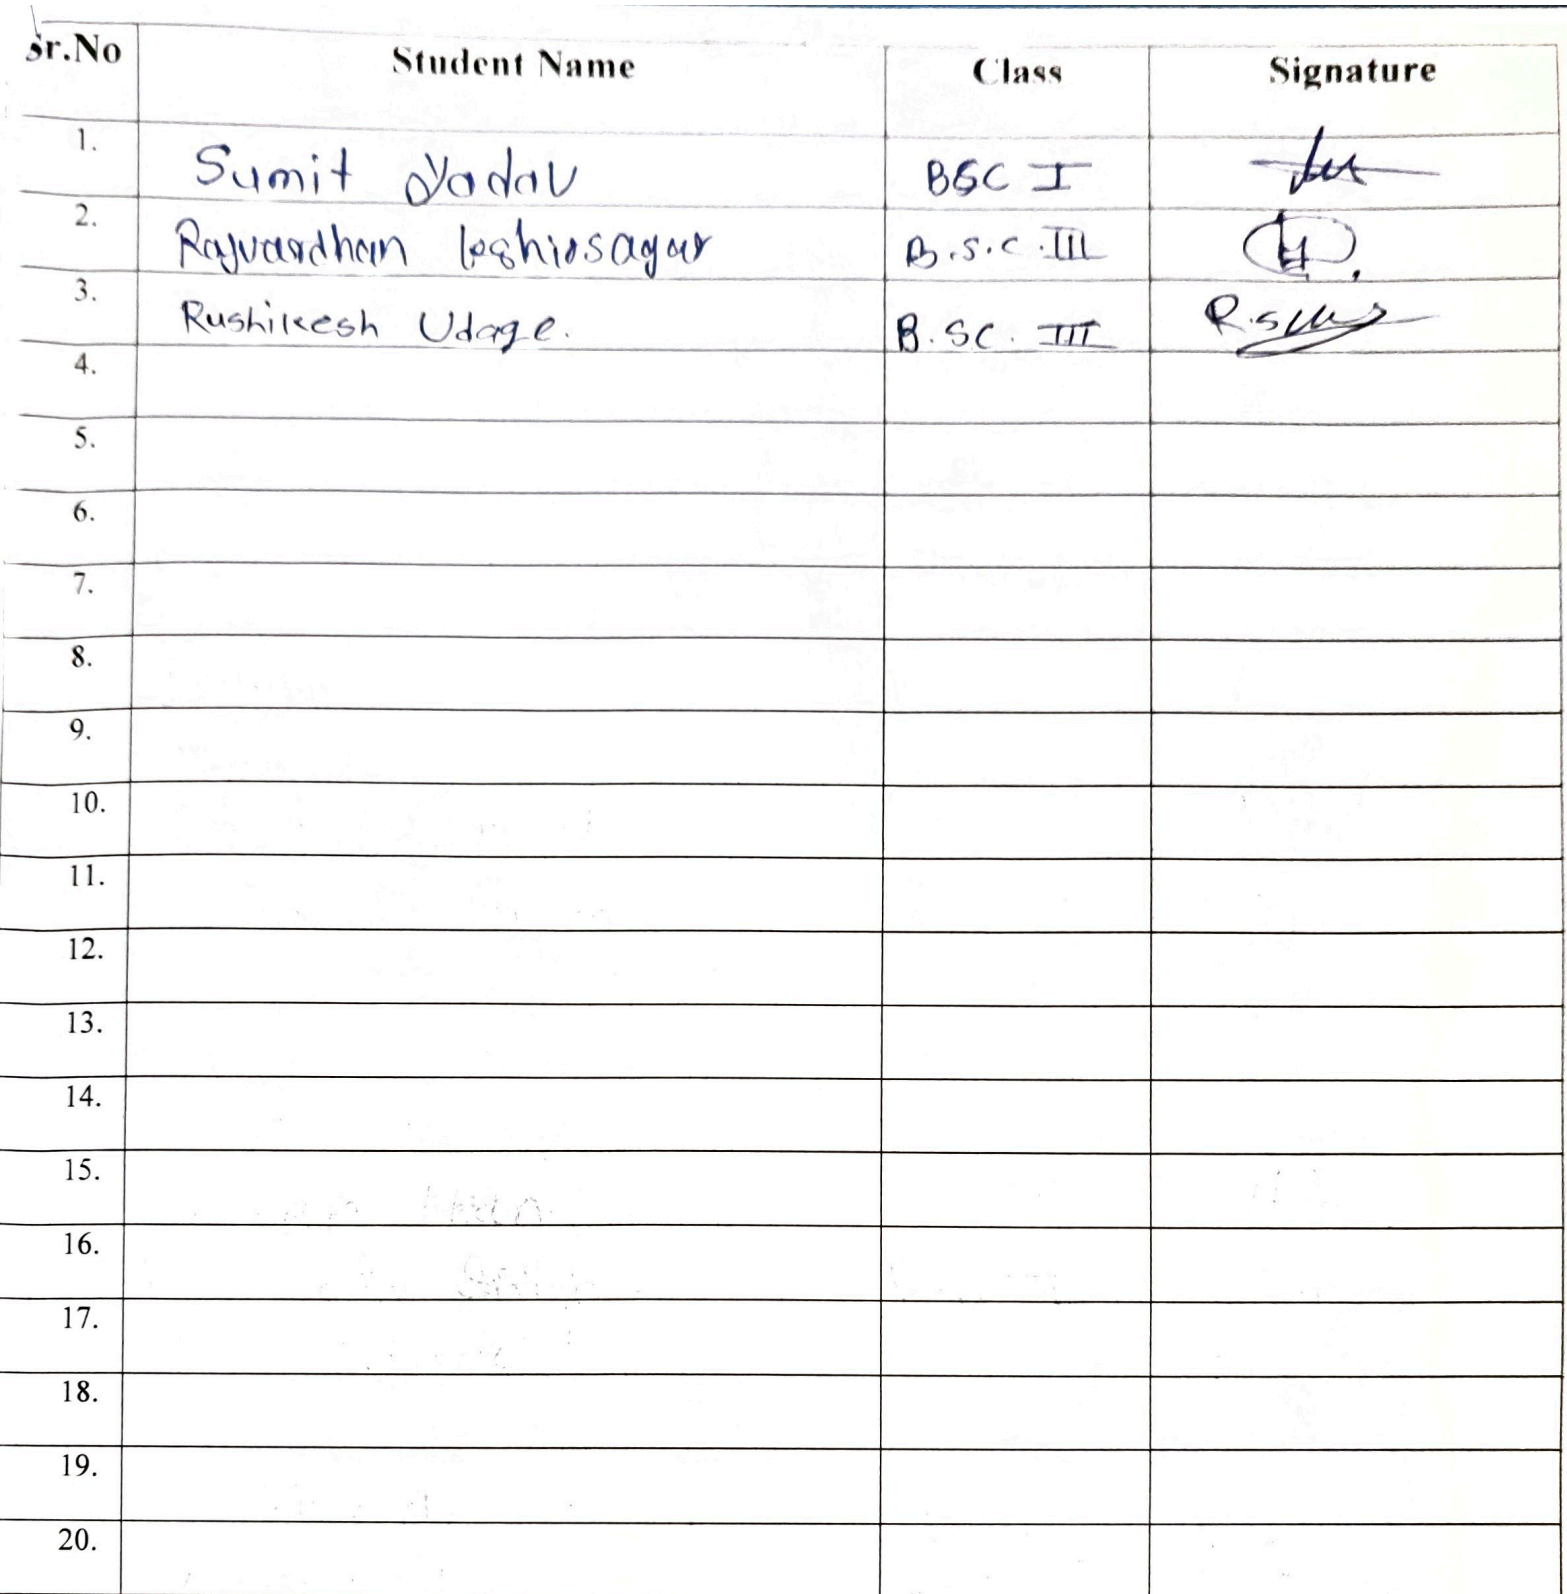 Sr.No Student Name Class Signature
1. Sumit Yadav BSC I
2. Rajvardhan kshirsagar B.S.C.III
3. Rushikesh Udage. B.SC. III
4.
5.
6.
7.
8.
9.
10.
11.
12.
13.
14.
15.
16.
17.
18.
19.
20.